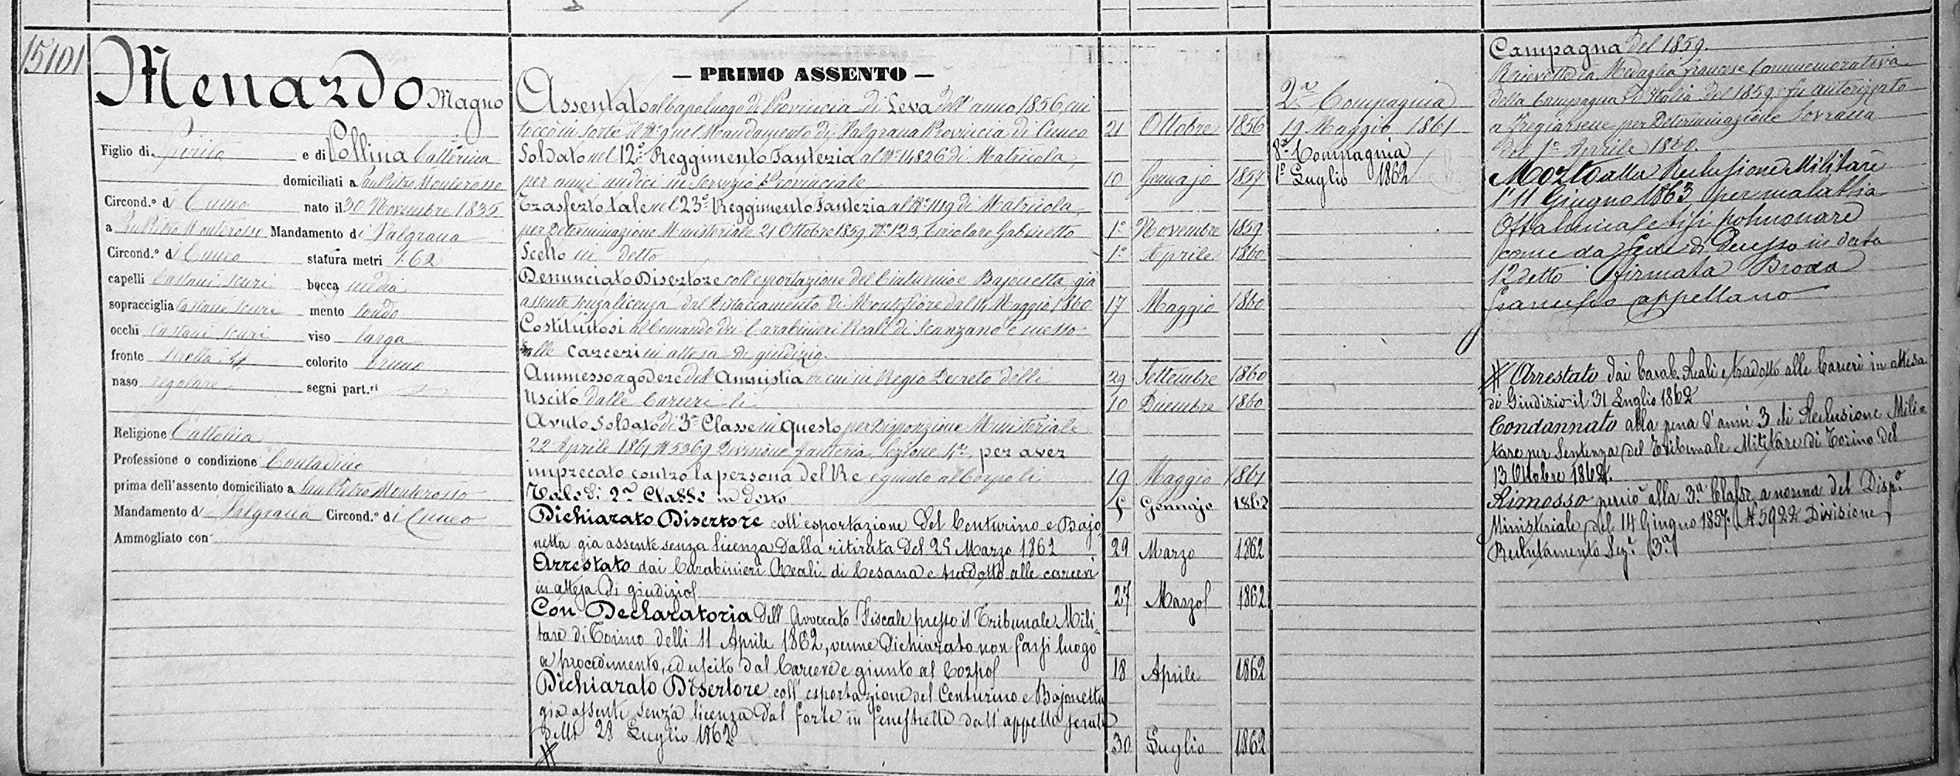 15101
Menardo Magno
Figlio di Spirito e di Collina Catterina
domiciliati a San Pietro Monterosso
Circond.º di Cuneo nato il 30 Novembre 1835
a San Pietro Monterosso Mandamento di Valgrana
Circond.º di Cuneo statura metri 1.62
capelli Castani scuri bocca media
sopracciglia Castane scure mento tondo
occhi Castani scuri viso largo
fronte stretta colorito bruno
naso regolare segni part.ri
Religione Cattolica
Professione o condizione Contadino
prima dell'assento domiciliato a San Pietro Monterosso
Mandamento di Valgrana Circond.º di Cuneo
Ammogliato con
— PRIMO ASSENTO —
Assentato al Capoluogo di Provincia di Leva dell'anno 1856, cui
toccò in sorte il Nº nel Mandamento di Valgrana Provincia di Cuneo 21 Ottobre 1856
Soldato nel 12º Reggimento Fanteria al Nº 14826 di Matricola,
per anni undici in servizio Provinciale 10 Gennajo 1857
Trasferto tale nel 23º Reggimento Fanteria al Nº di Matricola,
per Determinazione Ministeriale 21 Ottobre 1859 Nº 123, Circolare Gabinetto 1º Novembre 1859
Scelto in detto 1º Aprile 1860
Denunciato Disertore coll'esportazione del Centurino e Bajonetta già
assente senza licenza dal Distaccamento di Montefiore dal 14 Maggio 1860 17 Maggio 1860
Costituitosi al Comando dei Carabinieri Reali di Scanzano e messo
alle carceri in attesa di giudizio.
Ammesso a godere dell'Amnistia di cui in Regio Decreto delli 29 Settembre 1860
Uscito dalle Carceri li 10 Dicembre 1860
Avuto Soldato di 3ª Classe in questo per Disposizione Ministeriale
22 Aprile 1861 Nº 5369 Divisione Fanteria, Sezione 1ª, per aver
imprecato contro la persona del Re e giunto al Corpo li 19 Maggio 1861
Tale di 2ª Classe in Desso Gennajo 1862
Dichiarato Disertore coll'esportazione del Centurino e Bajo-
netta già assente senza licenza dalla ritirata del 25 Marzo 1862 29 Marzo 1862
Arrestato dai Carabinieri Reali di Cesana e tradotto alle carceri
in attesa di giudizio 27 Marzo 1862
Con Declaratoria dell'Avvocato Fiscale presso il Tribunale Mili-
tare di Torino delli 11 Aprile 1862, venne dichiarato non farsi luogo
a procedimento, ed uscito dal Carcere e giunto al Corpo 18 Aprile 1862
Dichiarato Disertore coll'esportazione del Centurino e Bajonetta
già assente senza licenza dal forte in Fenestrelle dall'appello serale
delli 28 Luglio 1862 30 Luglio 1862
#
2ª Compagnia
19 Maggio 1861
8ª Compagnia
1º Luglio 1862
Campagna del 1859.
Brevetto la Medaglia francese Commemorativa
della Campagna d'Italia del 1859, fu autorizzato
a fregiarsene per Determinazione Sovrana
del 1º Aprile 1860.
Morto alla Reclusione Militare
l'11 Giugno 1863 per malattia
Oftalmica e tisi polmonare
come da fede di Decesso in data
1º detto firmata Broda
Francesco Cappellano
# Arrestato dai Carab. Reali e tradotto alle Carceri in attesa
di Giudizio il 31 Luglio 1862
Condannato alla pena d'anni 3 di Reclusione Mili-
tare per Sentenza del Tribunale Militare di Torino del
13 Ottobre 1862.
Rimosso perciò alla 3ª Classe a norma del Disp.º
Ministeriale del 14 Giugno 1857 Nº 5922 Divisione
Reclutamento Sez.ª 3ª